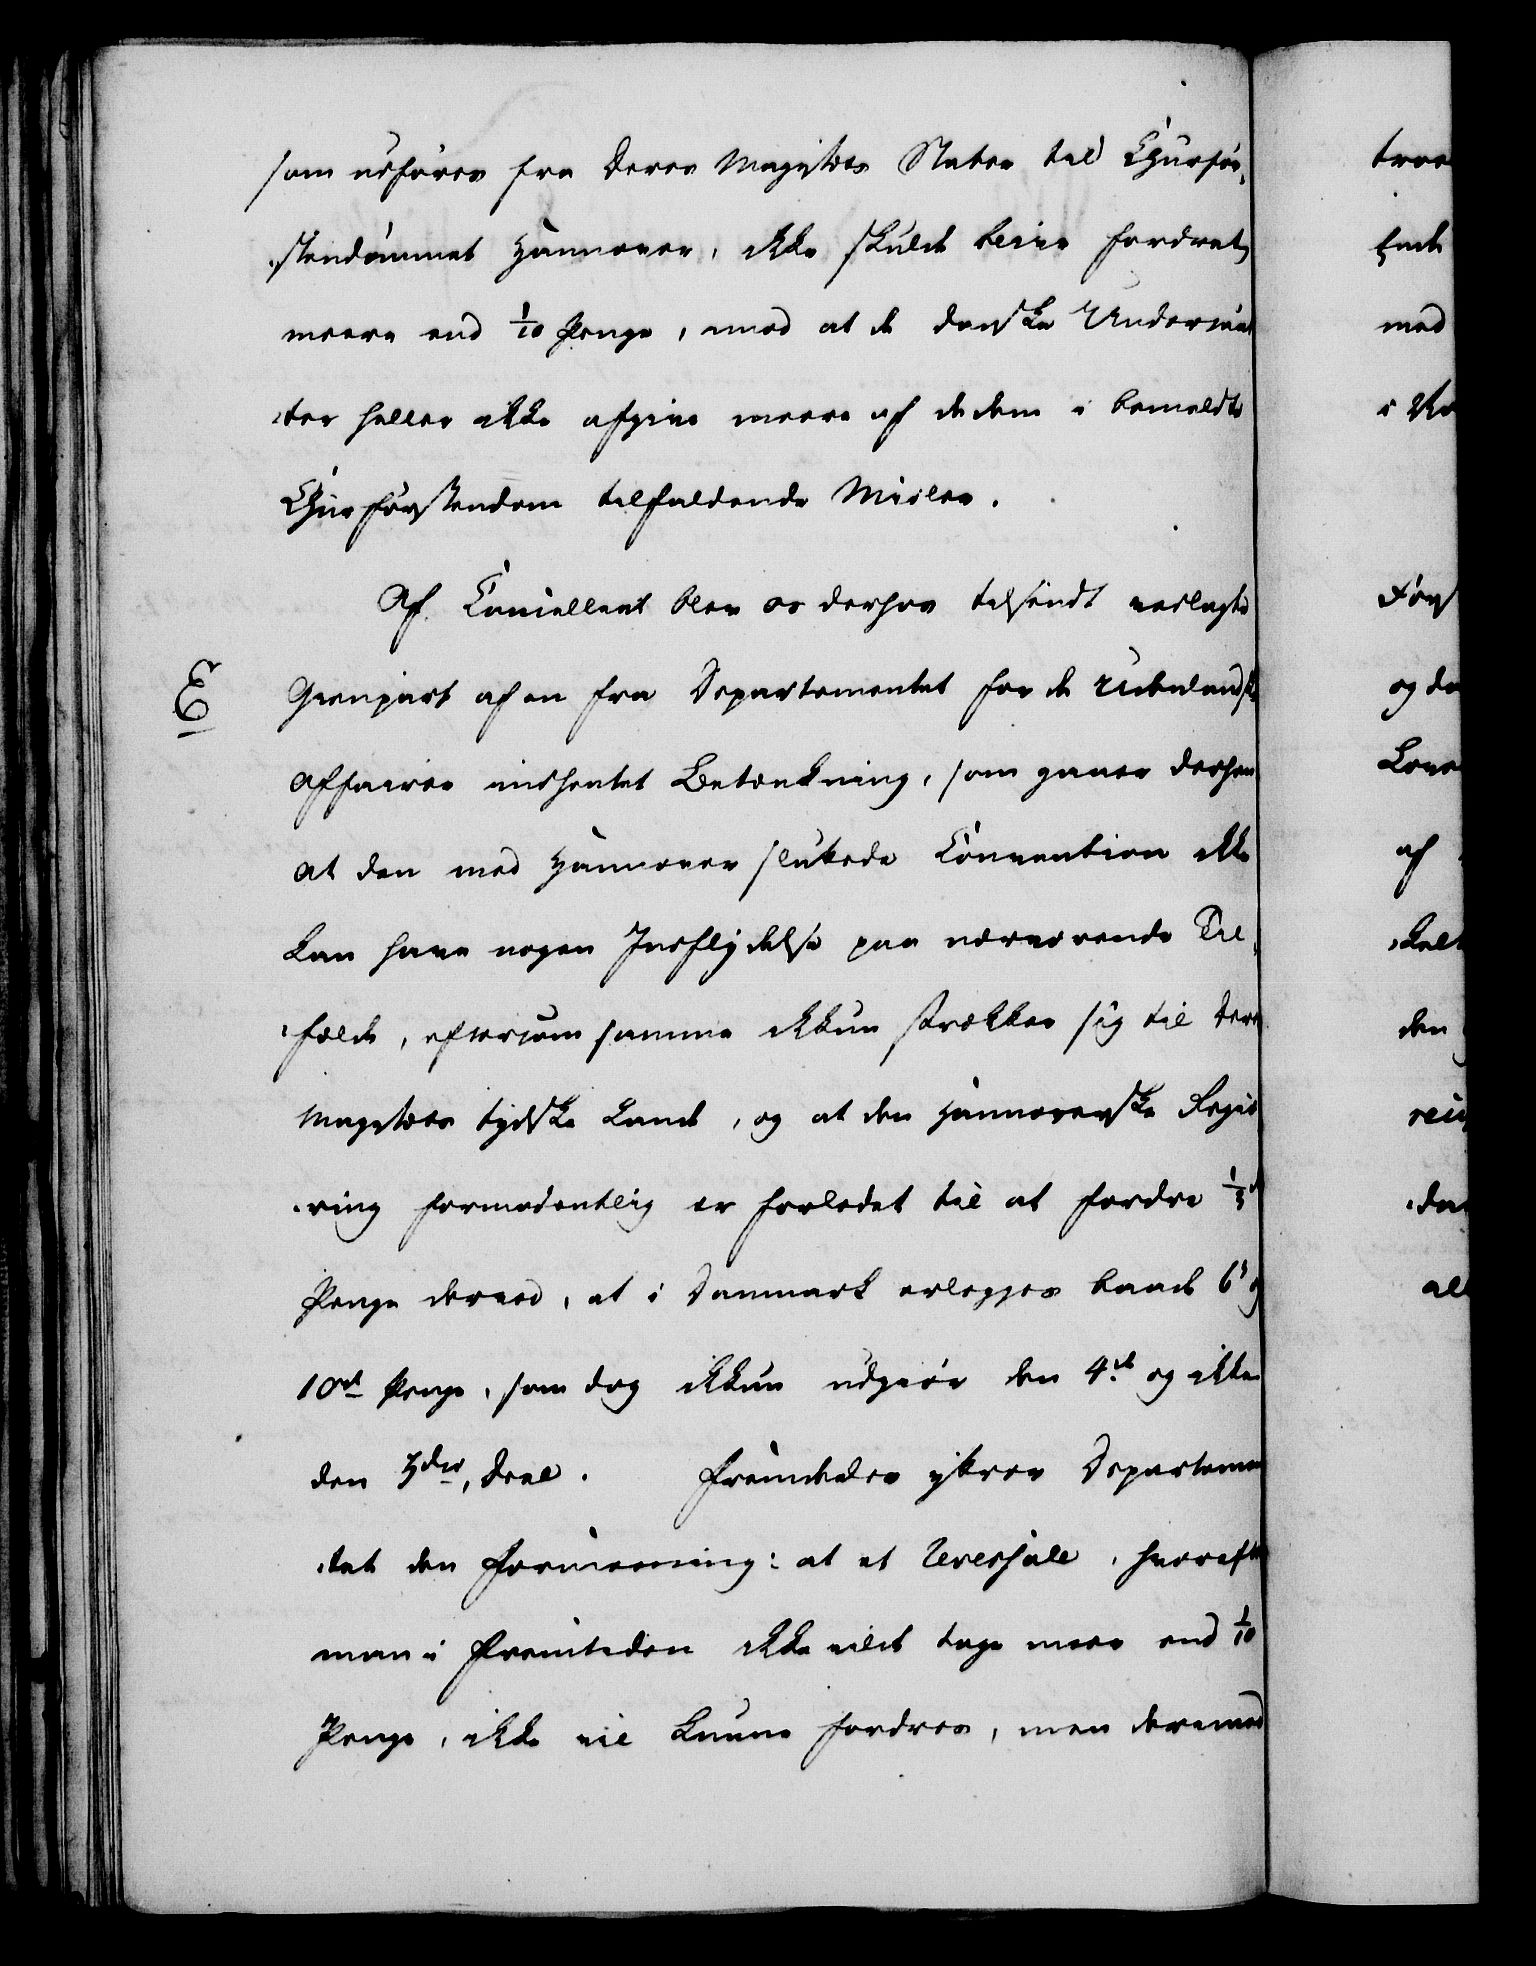 som udføres fra Deres Majestæts Stater til Chuurfør-
stendømmet Hannover, ikke skulde blive fordret
meere end 1/10 Penge, mod at de danske Undersaat
ter heller ikke afgive meere af de dem i bemeldte
Chuurførstendom tilfaldende Midler.
Af Cancelliet blev os derhos tilsendt vedlagte
E
Gienpart af en fra Departementet for de Udenlandske
Affairer indhentet Betænkning, som gaaer derhen
at den med Hannover sluttede Convention ikke
kan have nogen Indflydelse paa nærværende Til-
fælde, eftersom samme ikkun strækker sig til Deres
Majestæts tydske Lande, og at den Hannoverske Regie
ring formodentlig er forledet til at fordre 1/3
Penge derved, at i Danmark erlegges baade 6te og
10de Penge, som dog ikkun udgiør den 4de og ikke
den 3die Deel. Fremdeles yttrer Departemen
tet den Formeening: at et Reversale, hvorefter
man i Fremtiden ikke vilde tage meer end 1/10
Penge, ikke vil kunne fordres, men derimod
troe
med
og de
af
den
all